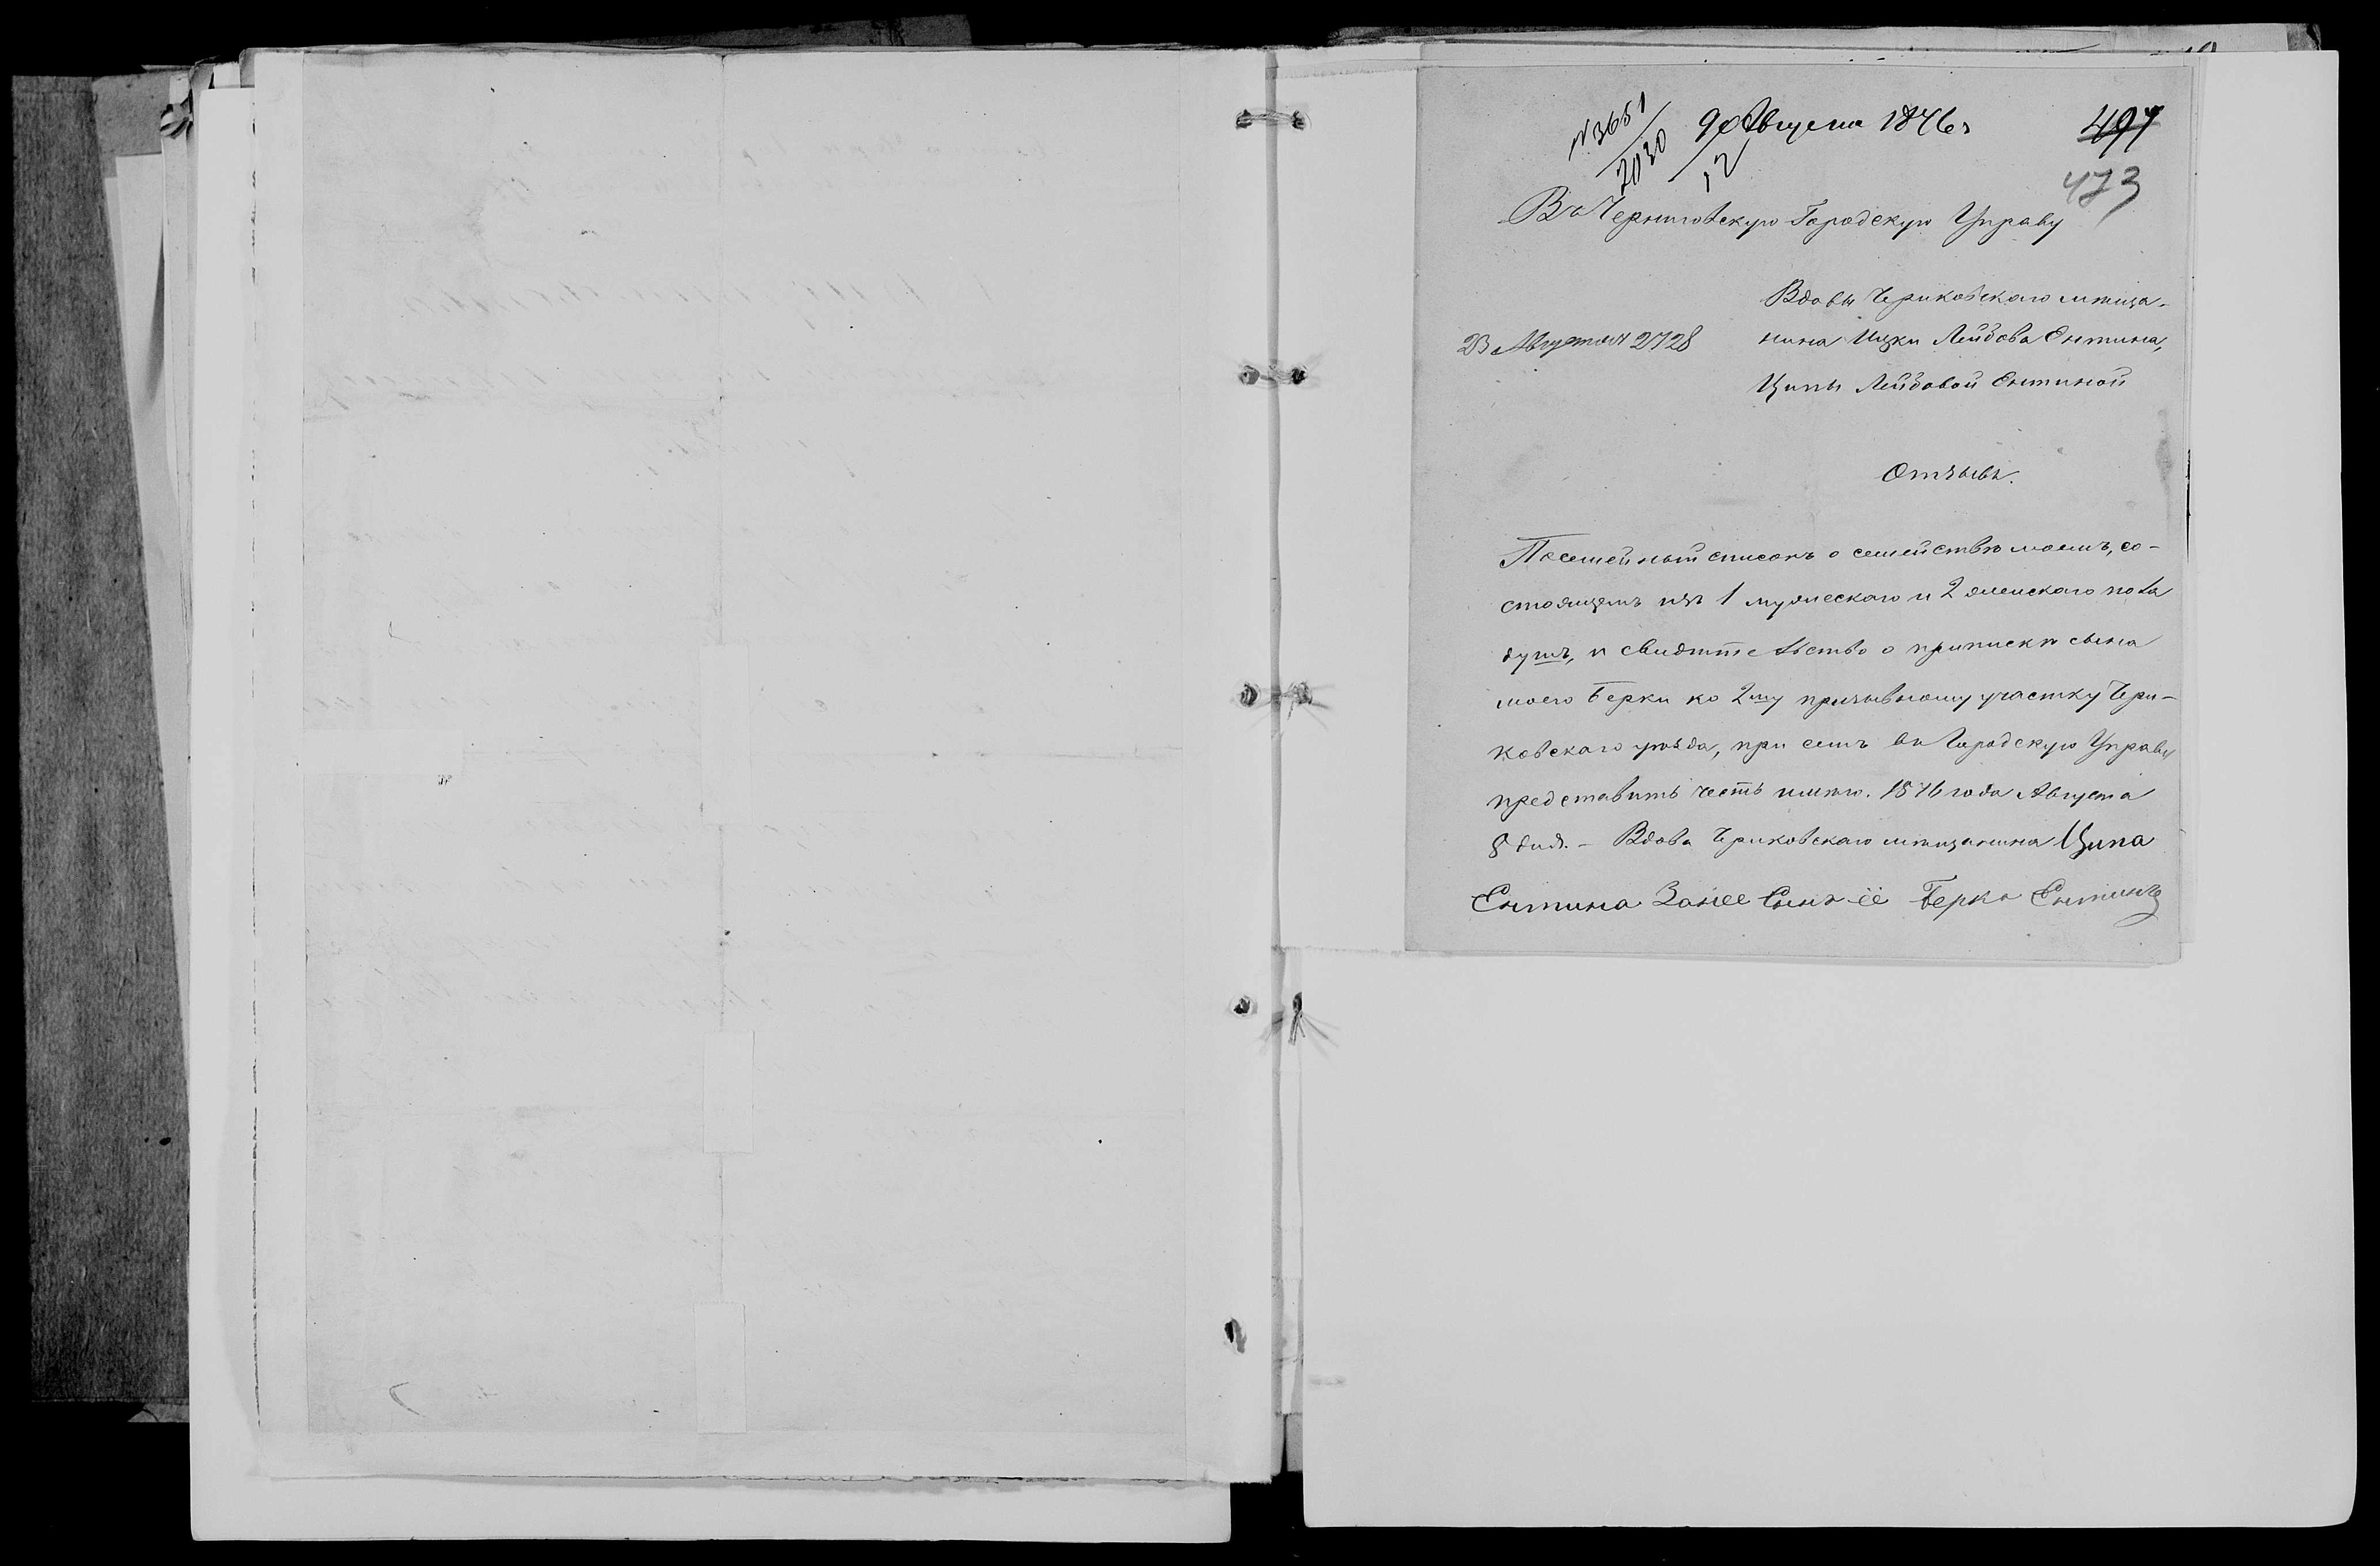 №3651
2030
9 Августа 1876 г
12
497
473
Въ Черниговскую Городскую Управу
Вдовы Чериковскаго мѣща-
23 Августа 2728
нина Ицки Лейбова Ентина,
Ципы Лейбовой Ентиной
Отзывъ.
Посемейный списокъ о семействѣ моемъ, со-
стоящемъ изъ 1 мужескаго и 2 женскаго пола
душъ, и свидѣтельство о припискѣ сына
моего Берки ко 2му призывному участку Чери-
ковскаго уѣзда, при семъ въ Городскую Управу
представить честь имѣю. 1876 года Августа
8 дня. – Вдова Чериковскаго мѣщанина Ципа
Ентина За нее Сынъ её Берка Ентинъ